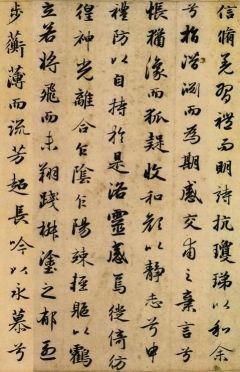 信脩羌習禮而明詩抗瓊珶以和余
兮指潛淵而為期感交甫之棄言兮
悵猶豫而狐疑收和顏以靜志兮申
禮防以自持於是洛靈感焉徙倚彷
徨神光離合乍陰乍陽竦輕軀以鶴
立若將飛而未翔踐椒塗之郁烈
步蘅薄而流芳超長吟以永慕兮